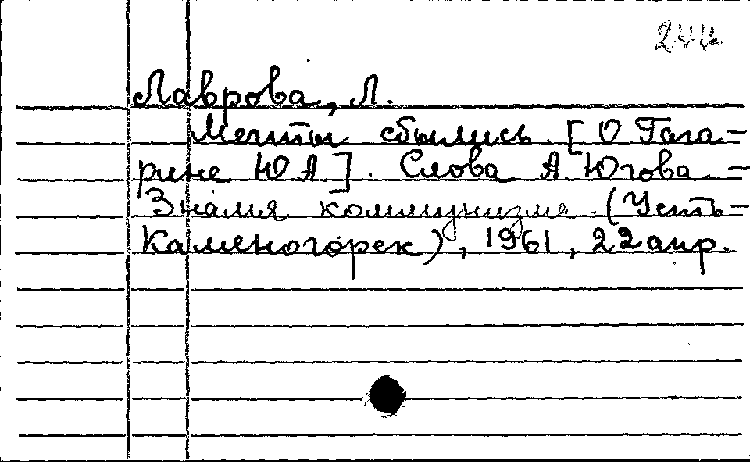 Лаврова, Л.
Мечты сбылись. [О Гага-
рине Ю.А.]. Слова А. Югова. -
Знамя коммунизма. (Усть-
Каменогорск), 1961, 22 апр.